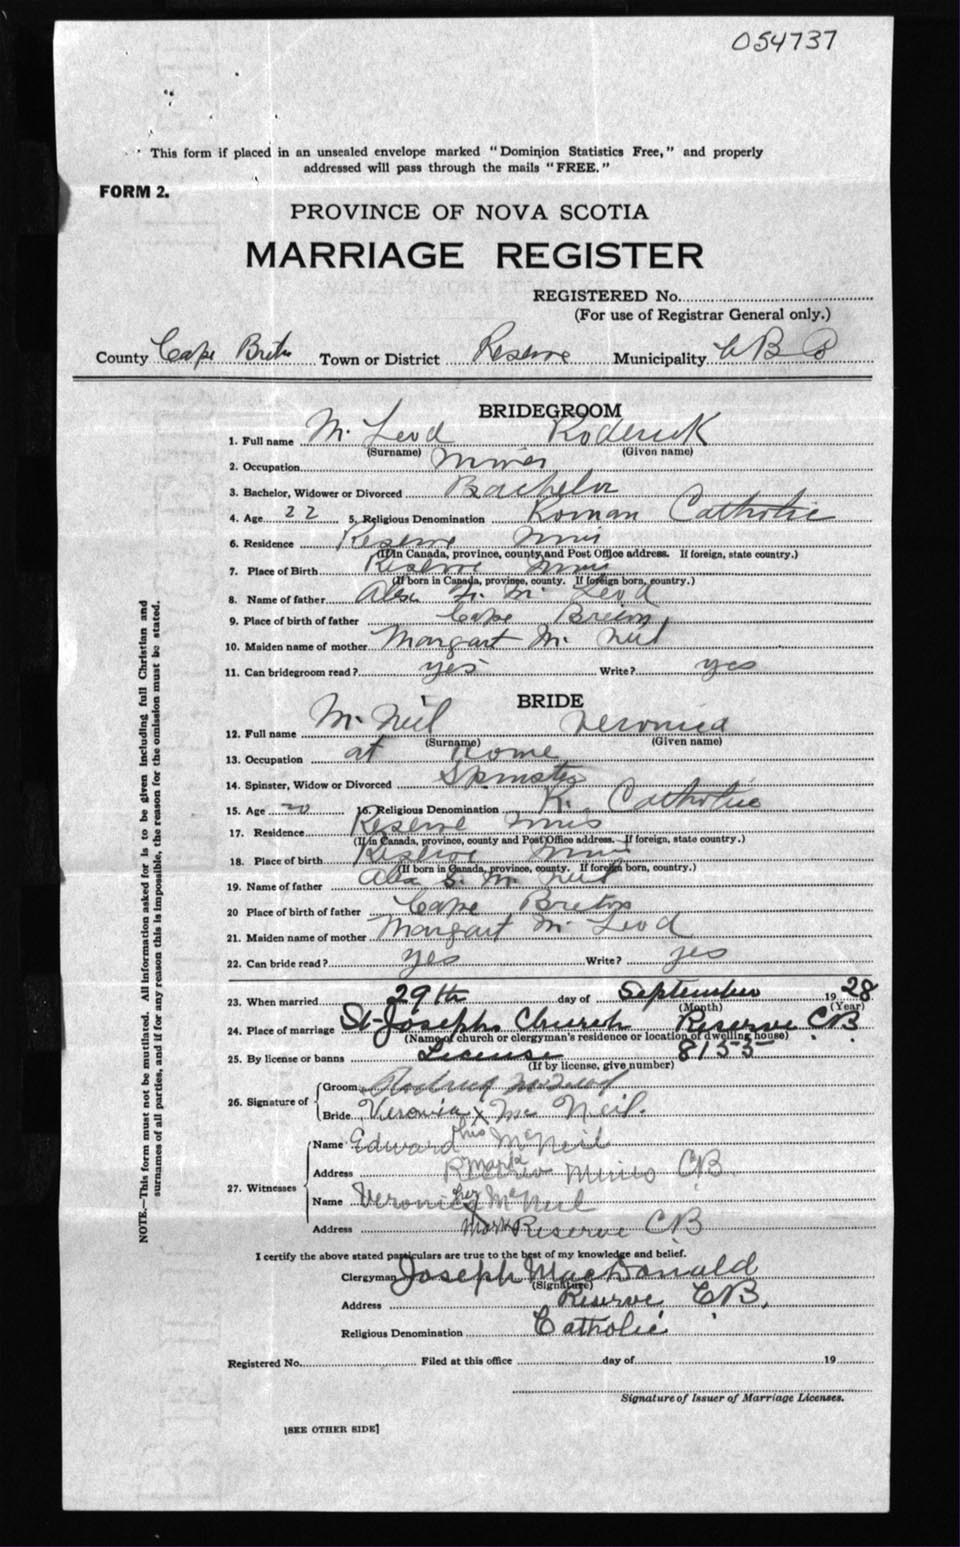 054737
This form if placed in an unsealed envelope marked "Dominion Statistics Free," and properly
addressed will pass through the mails "FREE."
FORM 2.
PROVINCE OF NOVA SCOTIA
MARRIAGE REGISTER
REGISTERED No.
(For use of Registrar General only.)
County Cape Breton Town or District Reserve Municipality C B Co
BRIDEGROOM
1. Full name McLeod Roderick
(Surname) (Given name)
2. Occupation Miner
3. Bachelor, Widower or Divorced Bachelor
4. Age 22 5. Religious Denomination Roman Catholic
6. Residence Reserve Mines
(If in Canada, province, county and Post Office address. If foreign, state country.)
7. Place of Birth Reserve Mines
(If born in Canada, province, county. If foreign born, country.)
8. Name of father Alex McLeod
9. Place of birth of father Cape Breton
10. Maiden name of mother Margart McNeil
11. Can bridegroom read? yes Write? yes
BRIDE
12. Full name McNeil Veronica
(Surname) (Given name)
13. Occupation at Home
14. Spinster, Widow or Divorced Spinster
15. Age 20 16. Religious Denomination R. Catholic
17. Residence Reserve Mines
(If in Canada, province, county and Post Office address. If foreign, state country.)
18. Place of birth Reserve Mines
(If born in Canada, province, county. If foreign born, country.)
19. Name of father Alex S. McNeil
20 Place of birth of father Cape Breton
21. Maiden name of mother Margart McLeod
22. Can bride read? yes Write? yes
23. When married 29th day of September 1928
(Month) (Year)
24. Place of marriage St Josephs Church Reserve C B
(Name of church or clergyman's residence or location of dwelling house)
25. By license or banns License 8155
(If by license, give number)
26. Signature of
Groom Rodrick McLeod
Bride Veronica X Mc Neil.
27. Witnesses
Name Edward his McNeil
Address mark Mines CB
Name Veronica her McNeil
Address mark Reserve CB
I certify the above stated particulars are true to the best of my knowledge and belief.
Clergyman Joseph MacDonald
(Signature)
Address Reserve CB,
Religious Denomination Catholic
Registered No. Filed at this office day of 19
Signature of Issuer of Marriage Licenses.
[SEE OTHER SIDE]
NOTE.—This form must not be mutilated. All information asked for is to be given including full Christian and
surnames of all parties, and if for any reason this is impossible, the reason for the omission must be stated.